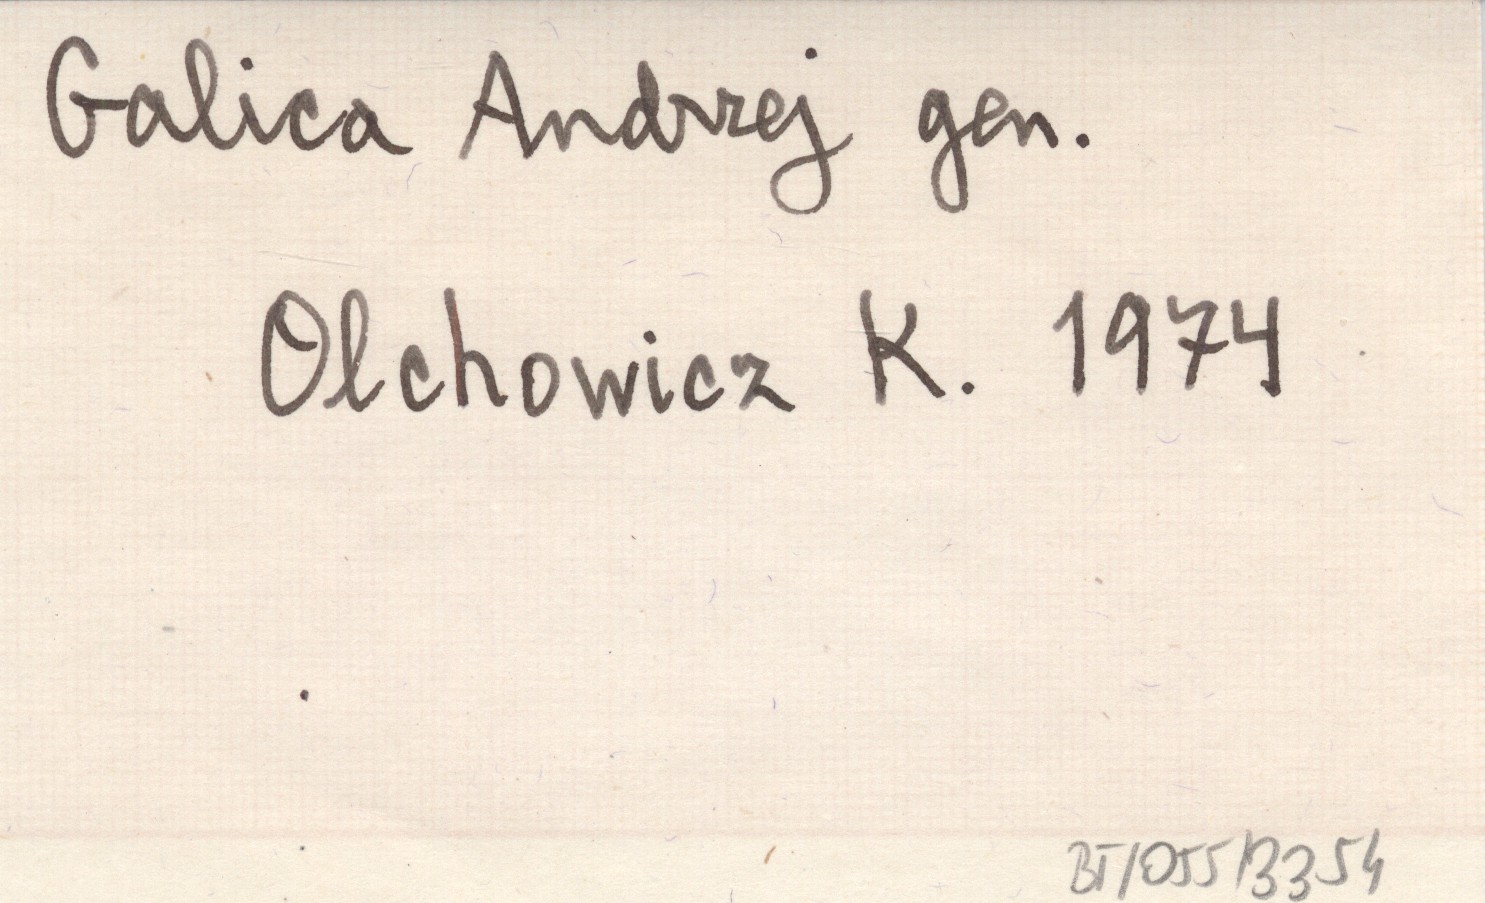 Galica Andrzej gen.
Olchowicz K. 1974
BT/055/3354